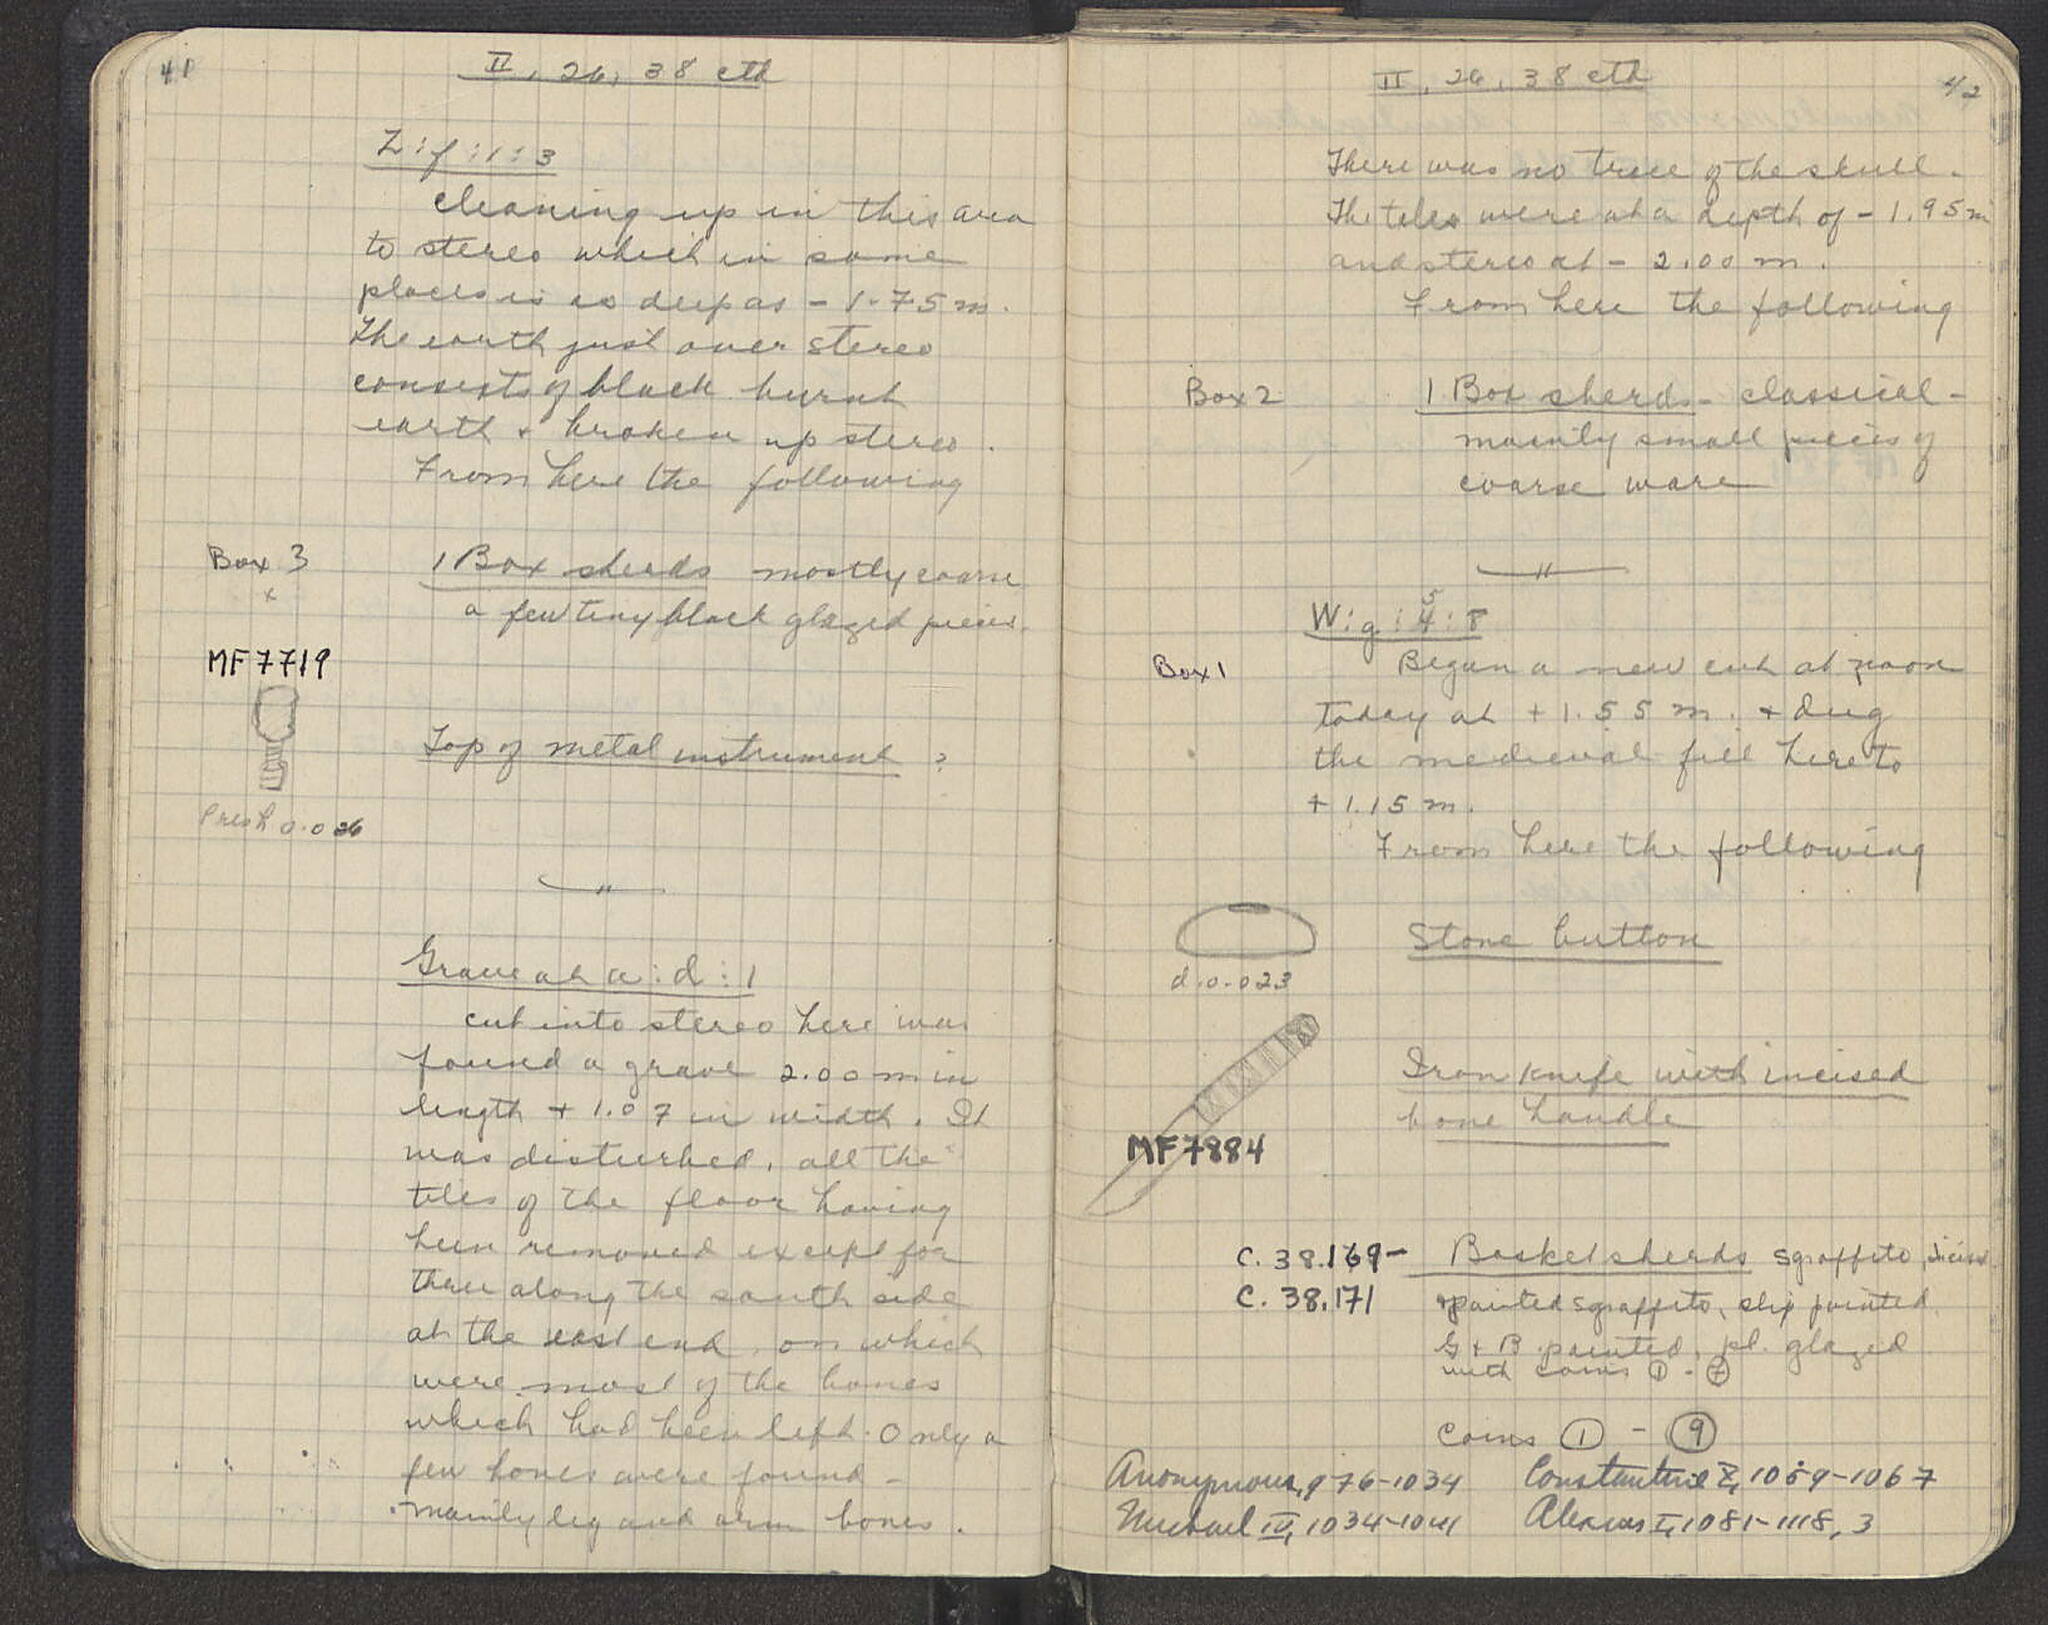 41
II, 26, 38 cth
Z:f:1:3
cleaning up in this area
to stereo which in some
places is as deep as - 1.75 m.
The earth just over stereo
consists of black burnt
earth + broken up stereo.
From here the following
Box 3
x
1 Box sherds mostly coarse
a few tiny black glazed pieces.
MF 7719
Top of metal instrument ?
Pres h 0.026
"
Grave at a:d:1
cut into stereo here was
found a grave 2.00 m in
length + 1.07 in width. It
was disturbed, all the
tiles of the floor having
been removed except for
three along the south side
at the east end on which
were most of the bones
which had been left. Only a
few bones were found -
mainly leg and arm bones.
II, 26, 38 cth
42
There was no trace of the skull.
The tiles were at a depth of - 1.95 m
and stereo at - 2.00 m.
From here the following
Box 2
1 Box sherds - classical -
mainly small pieces of
coarse ware
"
5
W:g:4:8
Box 1
Began a new cut at noon
today at + 1.55 m. + dug
the medieval fill here to
+ 1.15 m.
From here the following
Stone button
d. 0.023
Iron knife with incised
bone handle
MF 7884
C. 38.169 -
C. 38.171
Basket sherds sgraffito, incised
painted sgraffito, slip painted,
G + B painted, pl. glazed
with coins 1 - 7
Coins 1 - 9
Anonymous, 976-1034
Constantine X, 1059-1067
Michael IV, 1034-1041
Alexius I, 1081-1118, 3